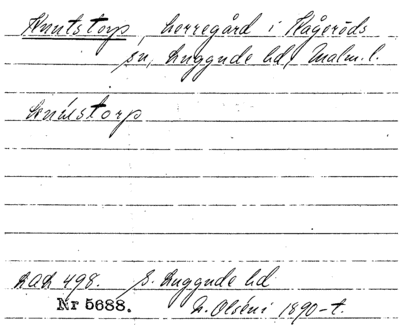 Knutstorp, herregård i Kågeröds
sn, Luggude hd, Malm. l.
Knutstorp
LAL 498. S. Luggude hd
Nr 5688. N. Olséni 1890-t.